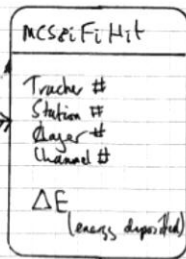 MCSciFiHit
Tracker #
Station #
Layer #
Channel #
ΔE
(energy deposited)